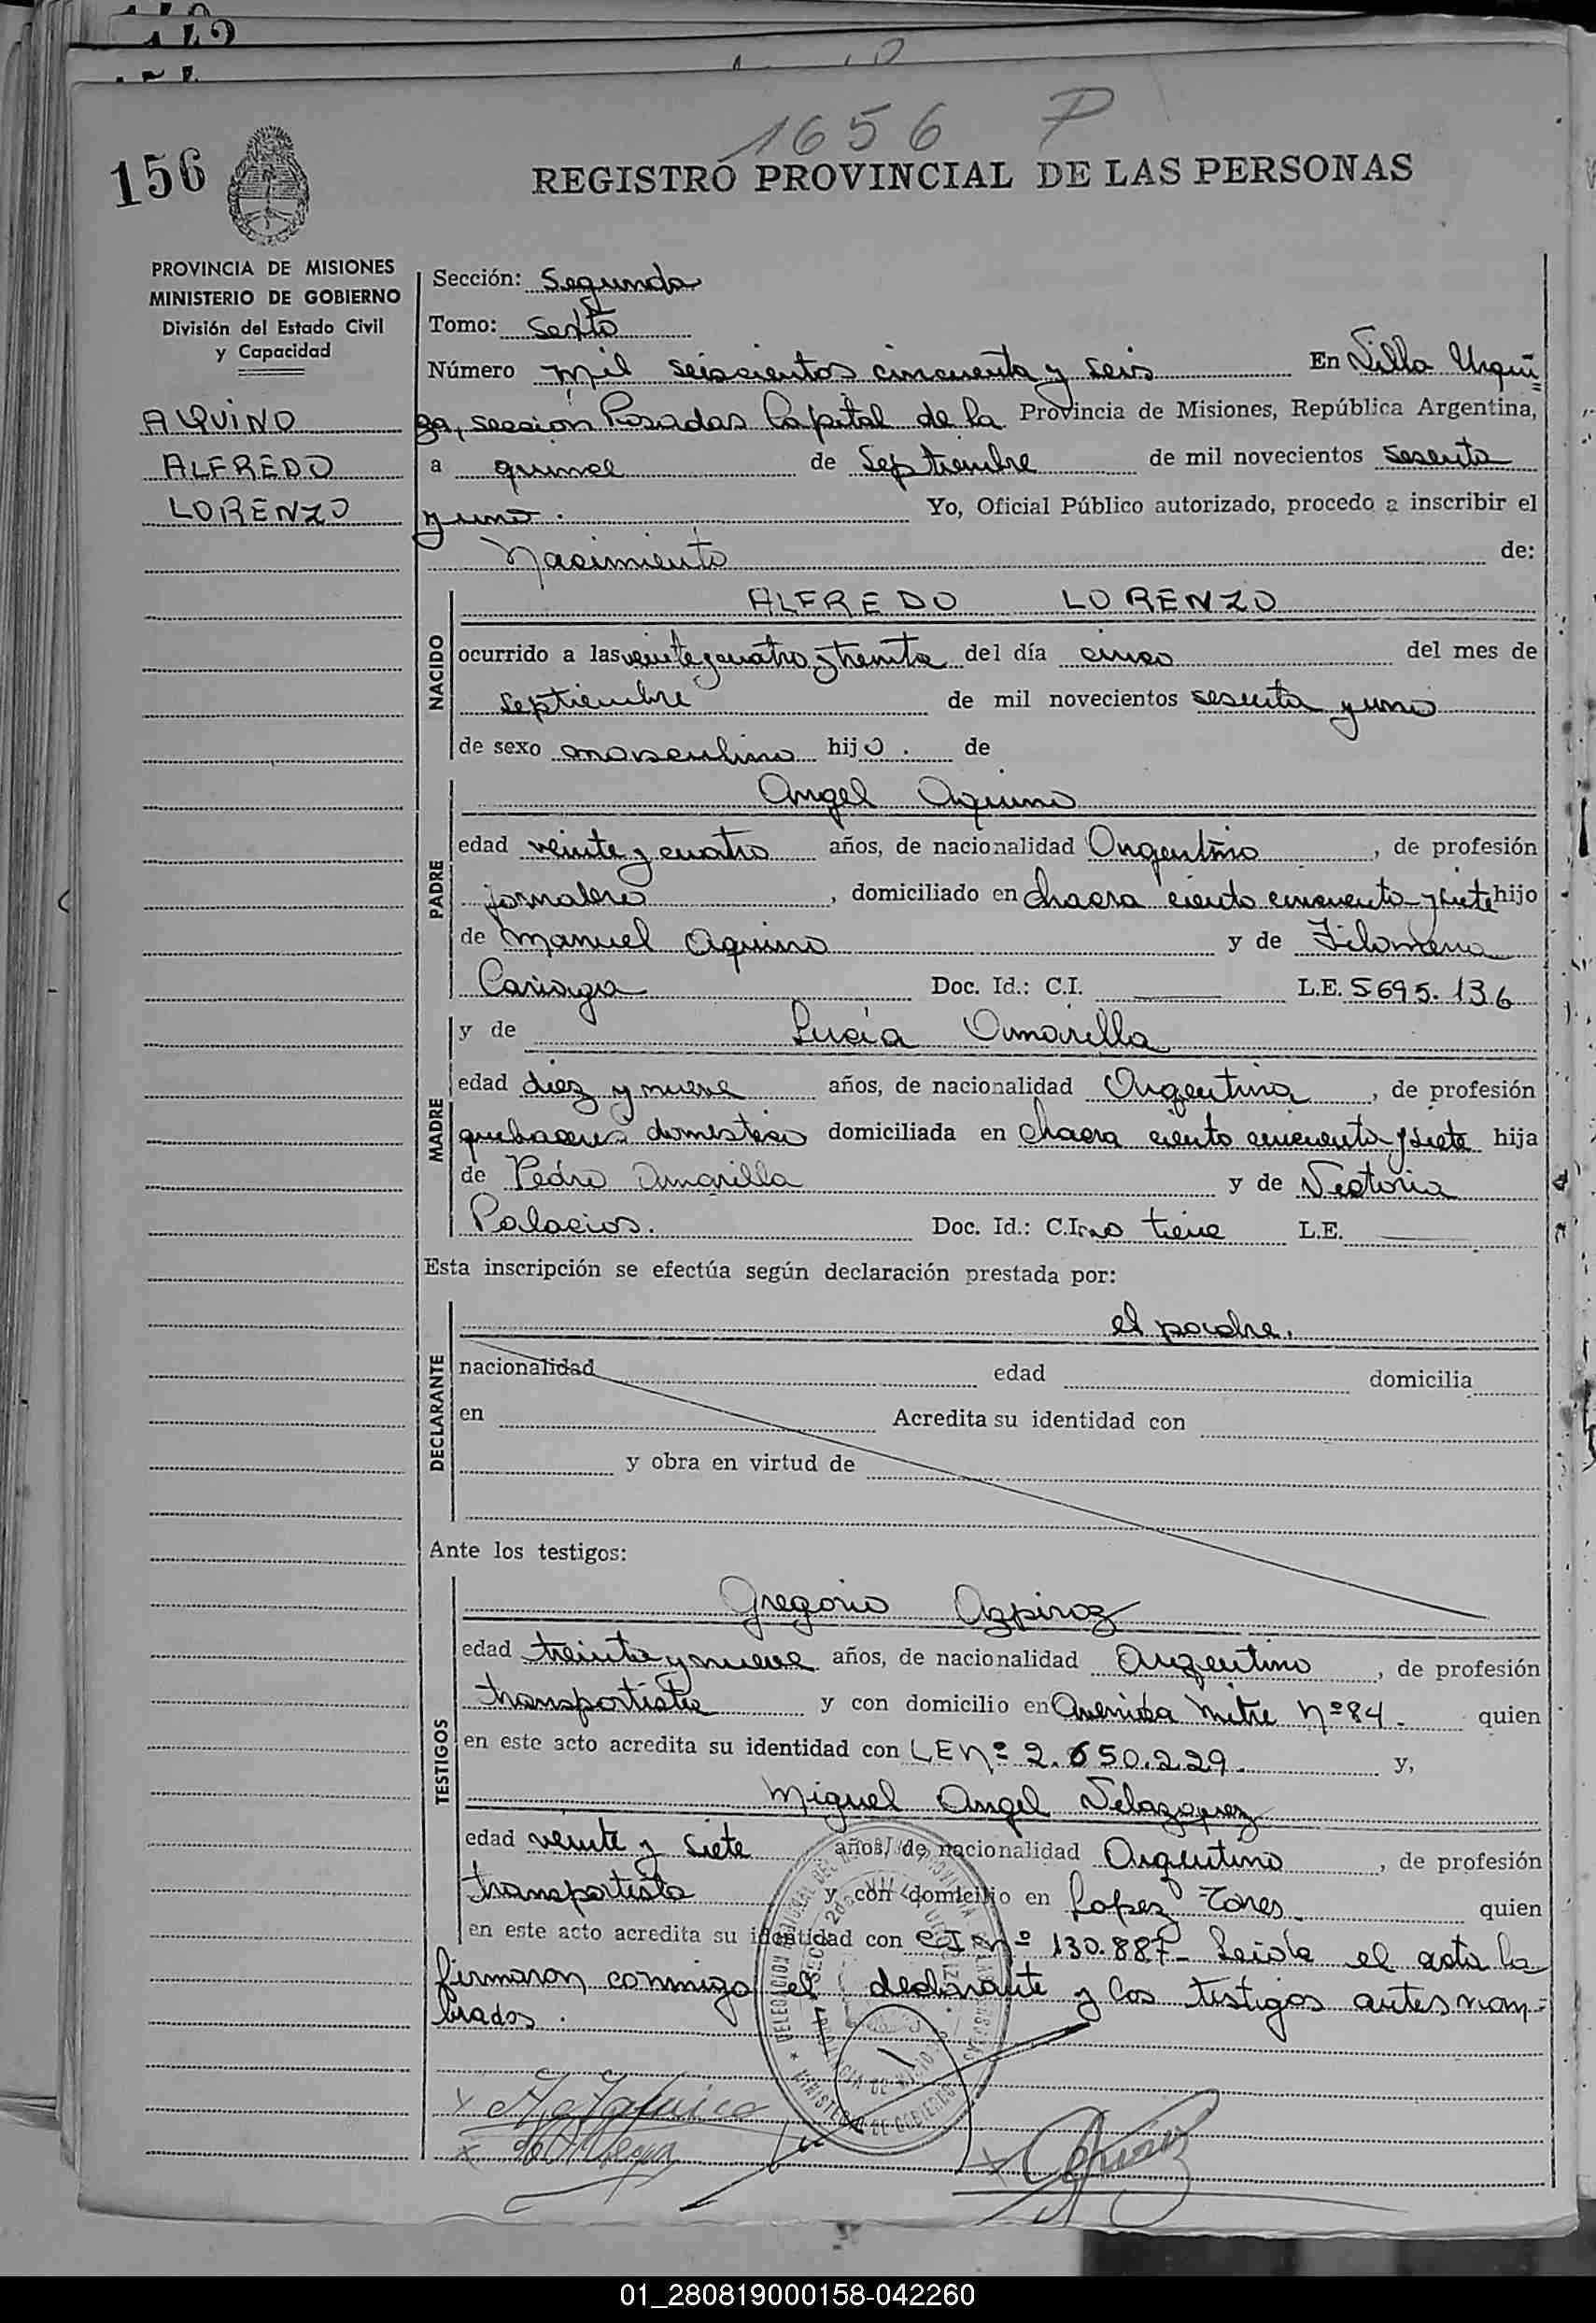 1656 P
156
REGISTRO PROVINCIAL DE LAS PERSONAS
PROVINCIA DE MISIONES
MINISTERIO DE GOBIERNO
División del Estado Civil
y Capacidad
AQUINO
ALFREDO
LORENZO
Sección: Segunda
Tomo: Sexto
Número mil seiscientos cincuenta y seis En Villa Urqui=
za, sección Posadas Capital de la Provincia de Misiones, República Argentina,
a quince de Septiembre de mil novecientos sesenta
y uno. Yo, Oficial Público autorizado, procedo a inscribir el
Nacimiento de:
NACIDO
ALFREDO LORENZO
ocurrido a las veinte y cuatro y treinta del día cinco del mes de
Septiembre de mil novecientos sesenta y uno
de sexo masculino hijo. de
PADRE
Angel Aquino
edad veinte y cuatro años, de nacionalidad Argentino, de profesión
jornalero, domiciliado en chacra ciento cincuenta y siete hijo
de Manuel Aquino y de Filomena
Cariaga Doc. Id.: C.I. L.E. 5695.136
MADRE
y de Lucía Amarilla
edad diez y nueve años, de nacionalidad Argentina, de profesión
quehaceres domestico domiciliada en chacra ciento cincuenta y siete hija
de Pedro Amarilla y de Victoria
Palacios. Doc. Id.: C.I. no tiene L.E.
Esta inscripción se efectúa según declaración prestada por:
DECLARANTE
el padre.
nacionalidad edad domicilia
en Acredita su identidad con
y obra en virtud de
Ante los testigos:
TESTIGOS
Gregorio Azpiroz
edad treinta y nueve años, de nacionalidad Argentino, de profesión
transportista y con domicilio en Avenida Mitre Nº 84. quien
en este acto acredita su identidad con LE Nº 2.650.229. y,
Miguel Angel Velazquez
edad veinte y siete años, de nacionalidad Argentino, de profesión
transportista y con domicilio en Lopez Torres quien
en este acto acredita su identidad con C.I nº 130.887- Leida el acta la
firmaron conmigo el declarante y los testigos antes nom=
brados.
01_280819000158-042260